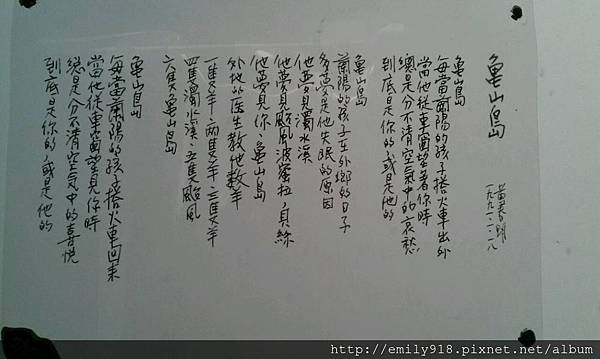 龜山島
黃春明
龜山島
每當蘭陽的孩子搭火車出外
當他從車窗望著你時
總是分不清空氣中的哀愁
到底是你的,或是他的
龜山島
蘭陽的孩子在外鄉的日子
多夢是他失眠的原因
他夢見濁水溪
他夢見颱風波蜜拉·貝絲
他夢見你 龜山島
外地的医生教他數羊
一隻羊·兩隻羊·三隻羊
四隻濁水溪·五隻颱風
六隻龜山島
龜山島
每當蘭陽的孩子搭火車回來
當他從車窗望見你時
總是分不清空氣中的喜悅
到底是你的,或是他的
http://emily918.pixnet.net/album